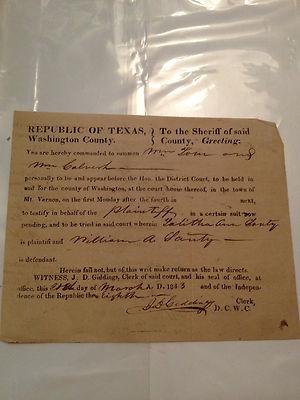 REPUBLIC OF TEXAS, } To the Sheriff of said
Washington County. } County, Greeting:
You are hereby commanded to summon Wm
Wm Calvert
personally to be and appear before the Hon. the District Court, to be held in
and for the county of Washington, at the court house thereof, in the town of
Mt. Vernon, on the first Monday after the fourth in next,
to testify in behalf of the plaintiff in a certain suit now
pending, and to be tried in said court wherein Talitha Ann
is plaintiff and William A
is defendant.
Herein fail not, but of this writ make return as the law directs.
WITNESS, J. D. Giddings, Clerk of said court, and his seal of office, at
office, this day of March A. D. 1843 and of the Indepen-
dence of the Republic the Eighth
J D Giddings Clerk,
D. C. W. C.